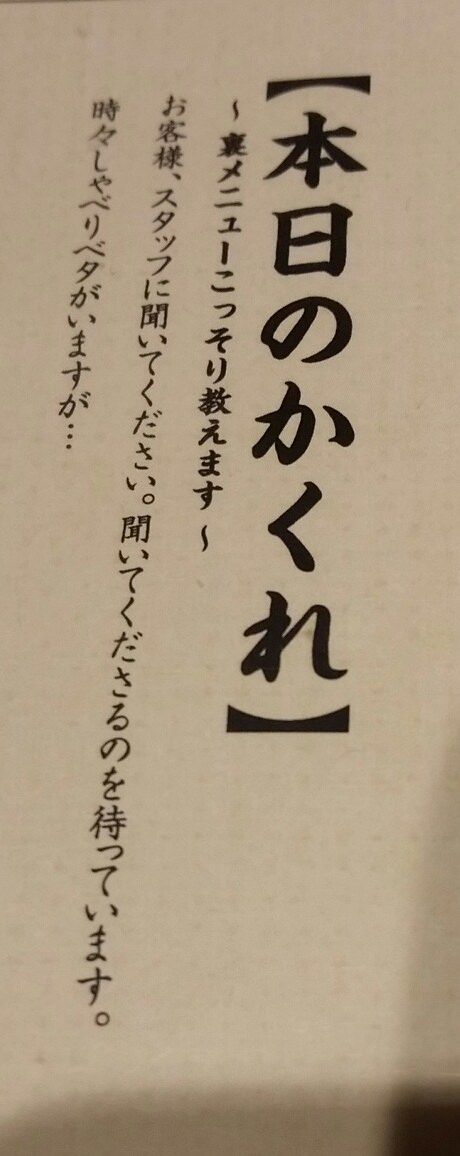 【本日のかくれ】
～裏メニューこっそり教えます～
お客様、スタッフに聞いてください。聞いてくださるのを待っています。
時々しゃべりベタがいますが…